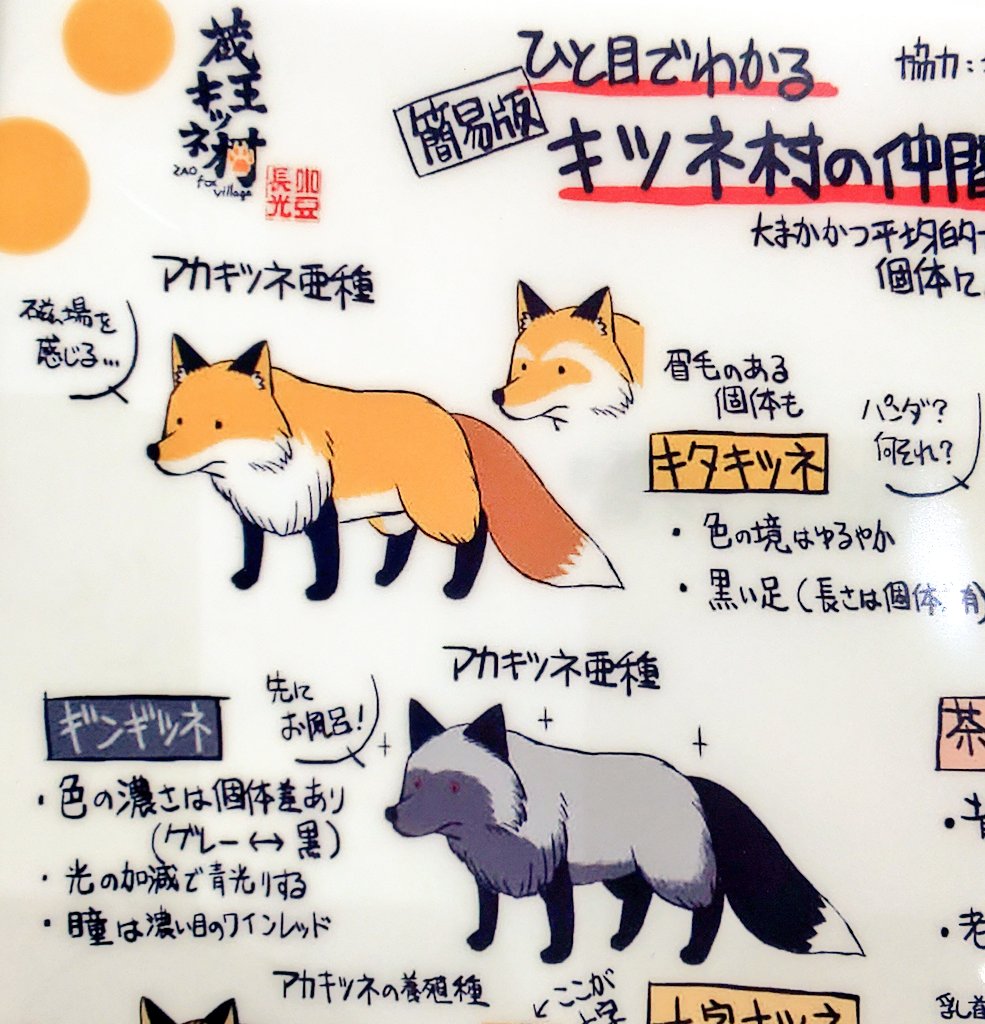 蔵王キツネ村
ZAO fox village
長光
小豆
簡易版
ひと目でわかる
キツネ村の仲間
協力:
大まかかつ平均的
個体に
アカギツネ亜種
磁場を
感じる…
眉毛のある
個体も
キタキツネ
パンダ?
何それ?
・色の境はゆるやか
・黒い足(長さは個体
アカギツネ亜種
ギンギツネ
先に
お風呂!
・色の濃さは個体差あり
(グレー↔黒)
・光の加減で青光りする
・瞳は濃い目のワインレッド
茶
アカギツネの養殖種
ここが
十字キツネ